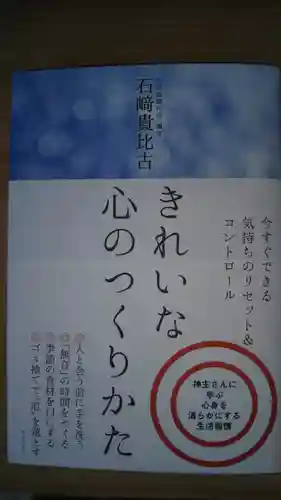 石﨑貴比古
きれいな
心のつくりかた
今すぐできる
気持ちのリセット&
コントロール
神主さんに
学ぶ
心身を
清らかにする
生活習慣
人と会う前に手を洗う
「無音」の時間をつくる
季節の食材を口にする
ゴミ捨てで“垢”を落とす